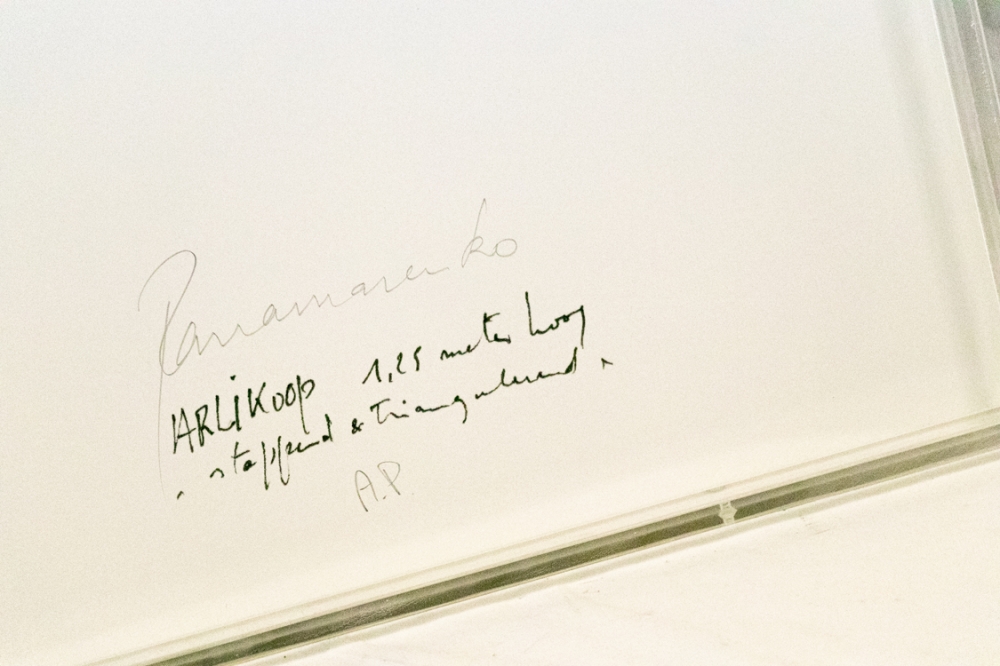 Panamarenko
ARLIKOOP 1,25 meter hoog
. stappend & triangulerend .
A.P.